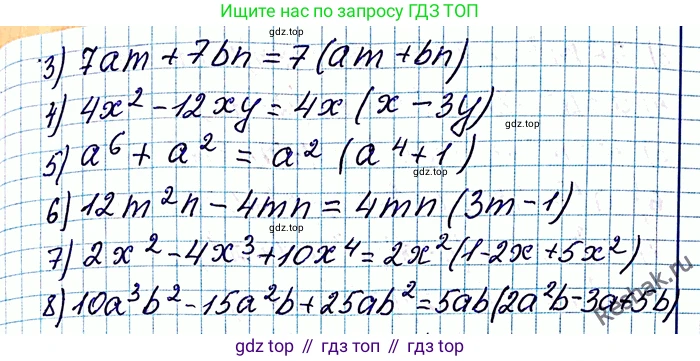 Ищите нас по запросу ГДЗ ТОП
gdz.top
3) 7am + 7bn = 7(am + bn)
4) 4x² - 12xy = 4x(x - 3y)
gdz.top
5) a⁶ + a² = a²(a⁴ + 1)
gdz.top
6) 12m²n - 4mn = 4mn(3m - 1)
gdz.top
7) 2x² - 4x³ + 10x⁴ = 2x²(1 - 2x + 5x²)
8) 10a³b² - 15a²b + 25ab² = 5ab(2a²b - 3a + 5b)
Reshak.ru
gdz.top // гдз.топ // gdz.top // гдз.топ